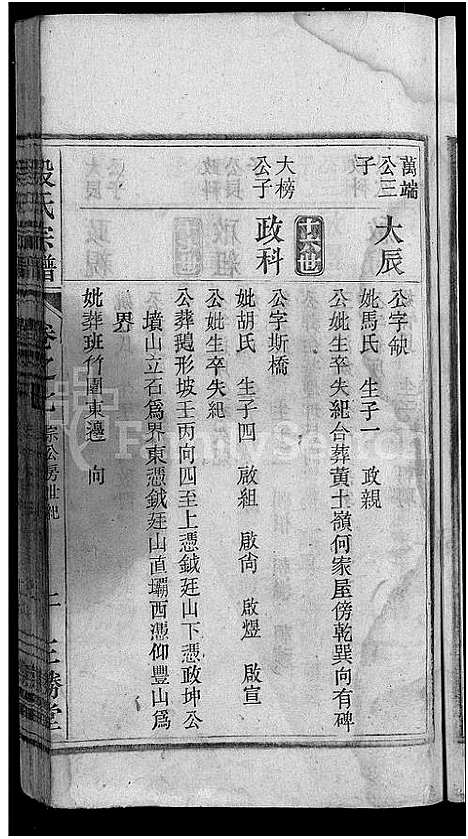 萬端公三子 大辰
公字缺
妣馬氏 生子一 政親
公妣生卒失紀合葬黃土嶺何家屋傍乾巽向有碑
十六世
大榜公子 政科
公字斯橋
妣胡氏 生子四 啟組 啟尙 啟煜 啟宣
公妣生卒失紀
公葬鵝形坡壬丙向四至上憑鉞廷山下憑政坤公
墳山立石爲界東憑鉞廷山直壩西憑仰豐山爲
界
妣葬班竹園東邊 向
段氏宗譜 卷之七 房世紀 三勝堂
FamilySearch